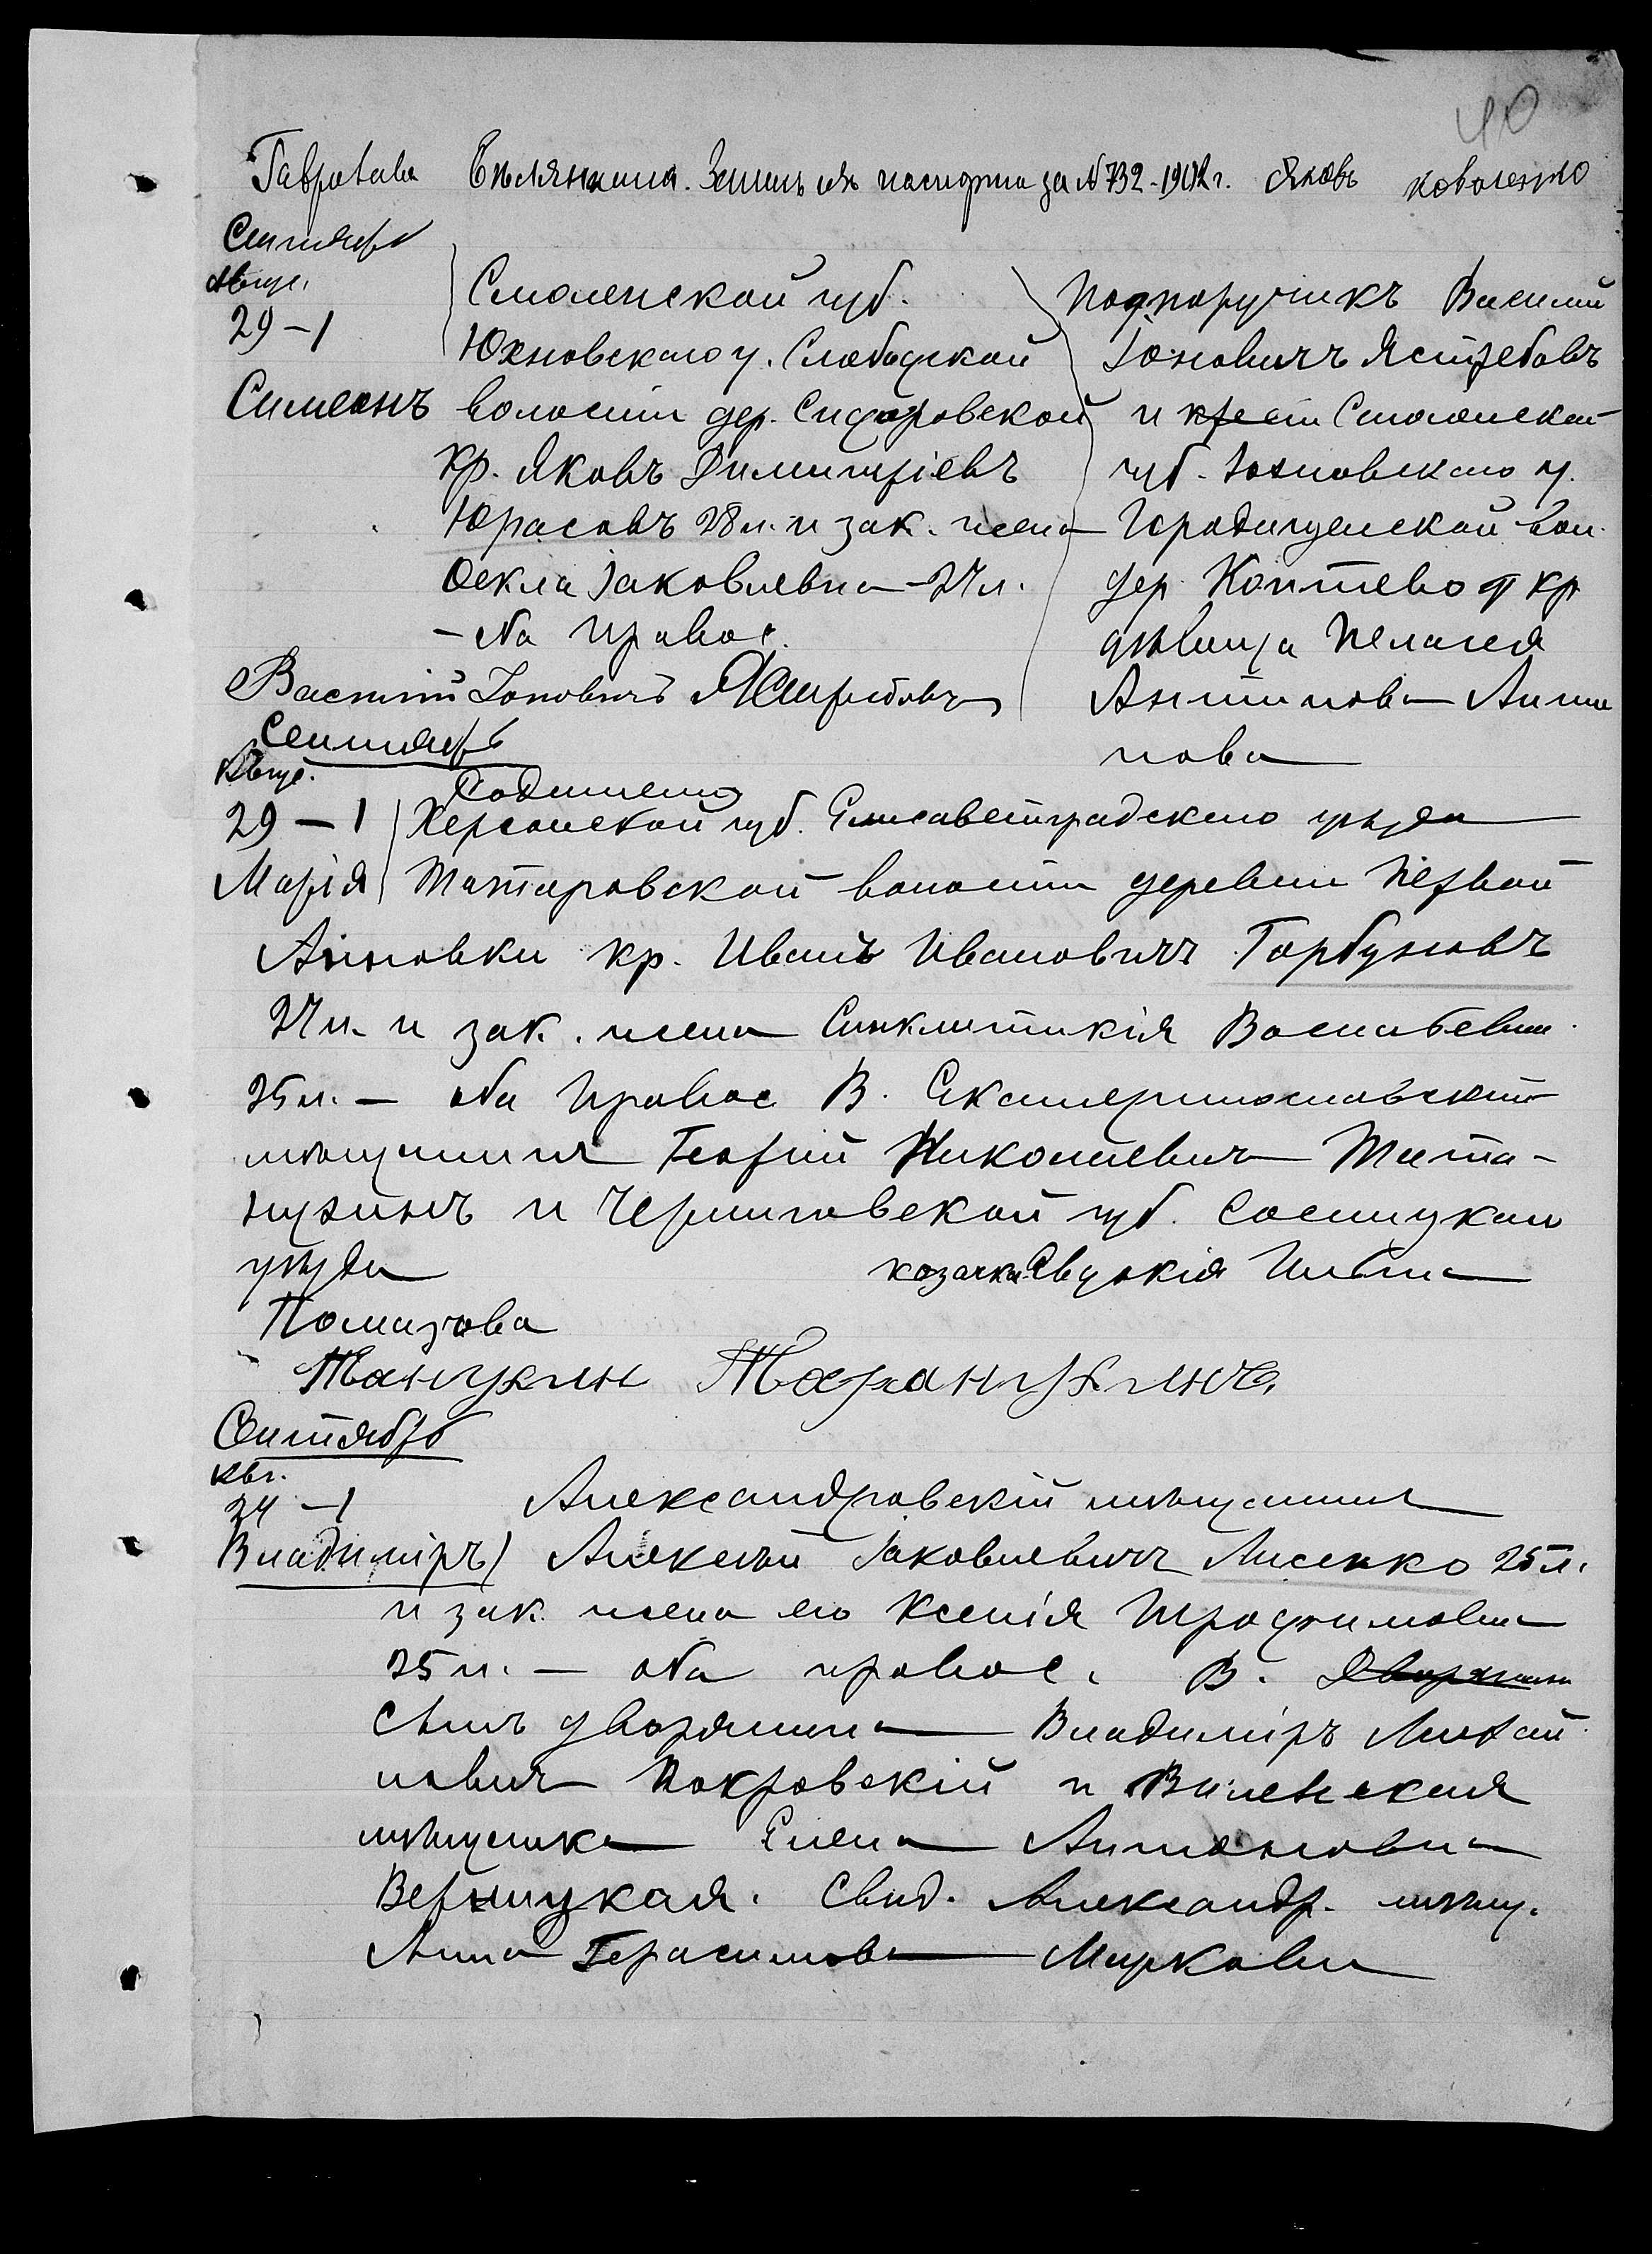 40
Гаврилова Бѣлянкина. Запись их паспорта за №732-1902г. Яковъ коваленко
Сентябрь
Авгус.
29-1
Симеонъ
Смоленской губ.
Юхновскаго у. Слободской
волости дер. Сидоровской
кр. Яковъ Димитріевъ
Юрасовъ 28 л. и зак. жена
Ѳекла Іаковлевна 24 л.
- оба правос.
Подпоручикъ Василий
Іоновичъ Ястребовъ
и крест Смоленской
губ. Юхновскаго у.
Городищенской вол.
дер. Коптево кр
дѣвица Пелагея
Антипова Анти
пова
Василій Іоновичъ Ястребовъ
Сентябрь
Авгус.
29-1
Марія
Херсонской губ. Елисаветградскаго уѣзда
Татаровской волости деревни Первой
Анновки кр. Иванъ Ивановичъ Горбуновъ
27 л. и зак. жена Синклитикія Васильевна
25 л. - оба Правос В. Екатеринославскій
мѣщанинъ Георгий Николаевич Тата-
нухинъ и Черниговской губ. Сосницкаго
уѣзда козачка Евдокія Ильина
Помазова
Танухин Таранухинъ
Сентябрь
Авг.
24-1
Владиміръ
Александровскій мѣщанинъ
Алексѣй Іаковлевичъ Лисенко 25 л.
и зак. жена его Ксенія Трофимовна
25 л. - оба правос. В. Дворянин
сынъ дворянина Владиміръ Михай
лович Покровскій и Виленская
мѣщанка Елена Антоновна
Верницкая. Свид. Александр. мѣщ.
Анна Герасимова Маркова